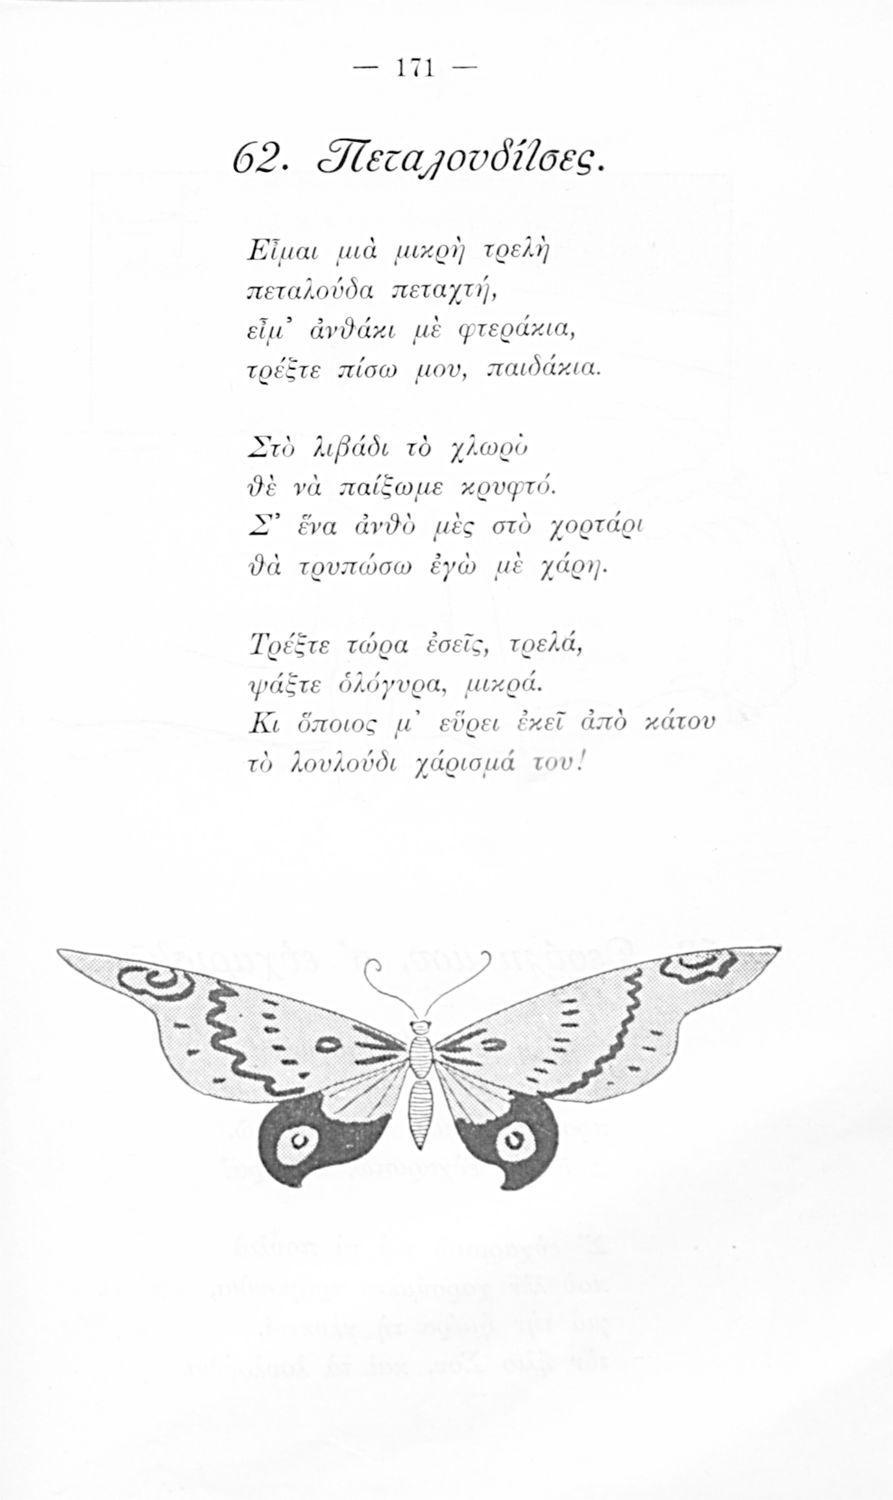 — 171 —
62. Πεταλουδίτσες.
Εἶμαι μιὰ μικρὴ τρελὴ
πεταλούδα πεταχτή,
εἶμ᾽ ἀνθάκι μὲ φτεράκια,
τρέξτε πίσω μου, παιδάκια.
Στὸ λιβάδι τὸ χλωρὸ
θὲ νὰ παίξωμε κρυφτό.
Σ᾽ ἕνα ἀνθὸ μὲς στὸ χορτάρι
θὰ τρυπώσω ἐγὼ μὲ χάρη.
Τρέξτε τώρα ἐσεῖς, τρελά,
ψάξτε ὁλόγυρα, μικρά.
Κι ὅποιος μ᾽ εὕρει ἐκεῖ ἀπὸ κάτου
τὸ λουλούδι χάρισμά του!